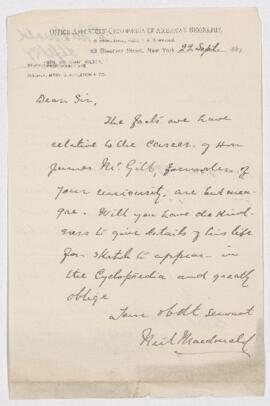 OFFICE APPLETONS' CYCLOPÆDIA OF AMERICAN BIOGRAPHY,
Bond Street, New York, 22 Sept. 188
Dear Sir,
The facts we have
relative to the career of Hon
James McGill founder of
your university, are but mea-
gre. Will you have the kind-
ness to give details of his life
for sketch to appear in
the Cyclopædia and greatly
oblige
Your obdt servant
Neil Macdonald